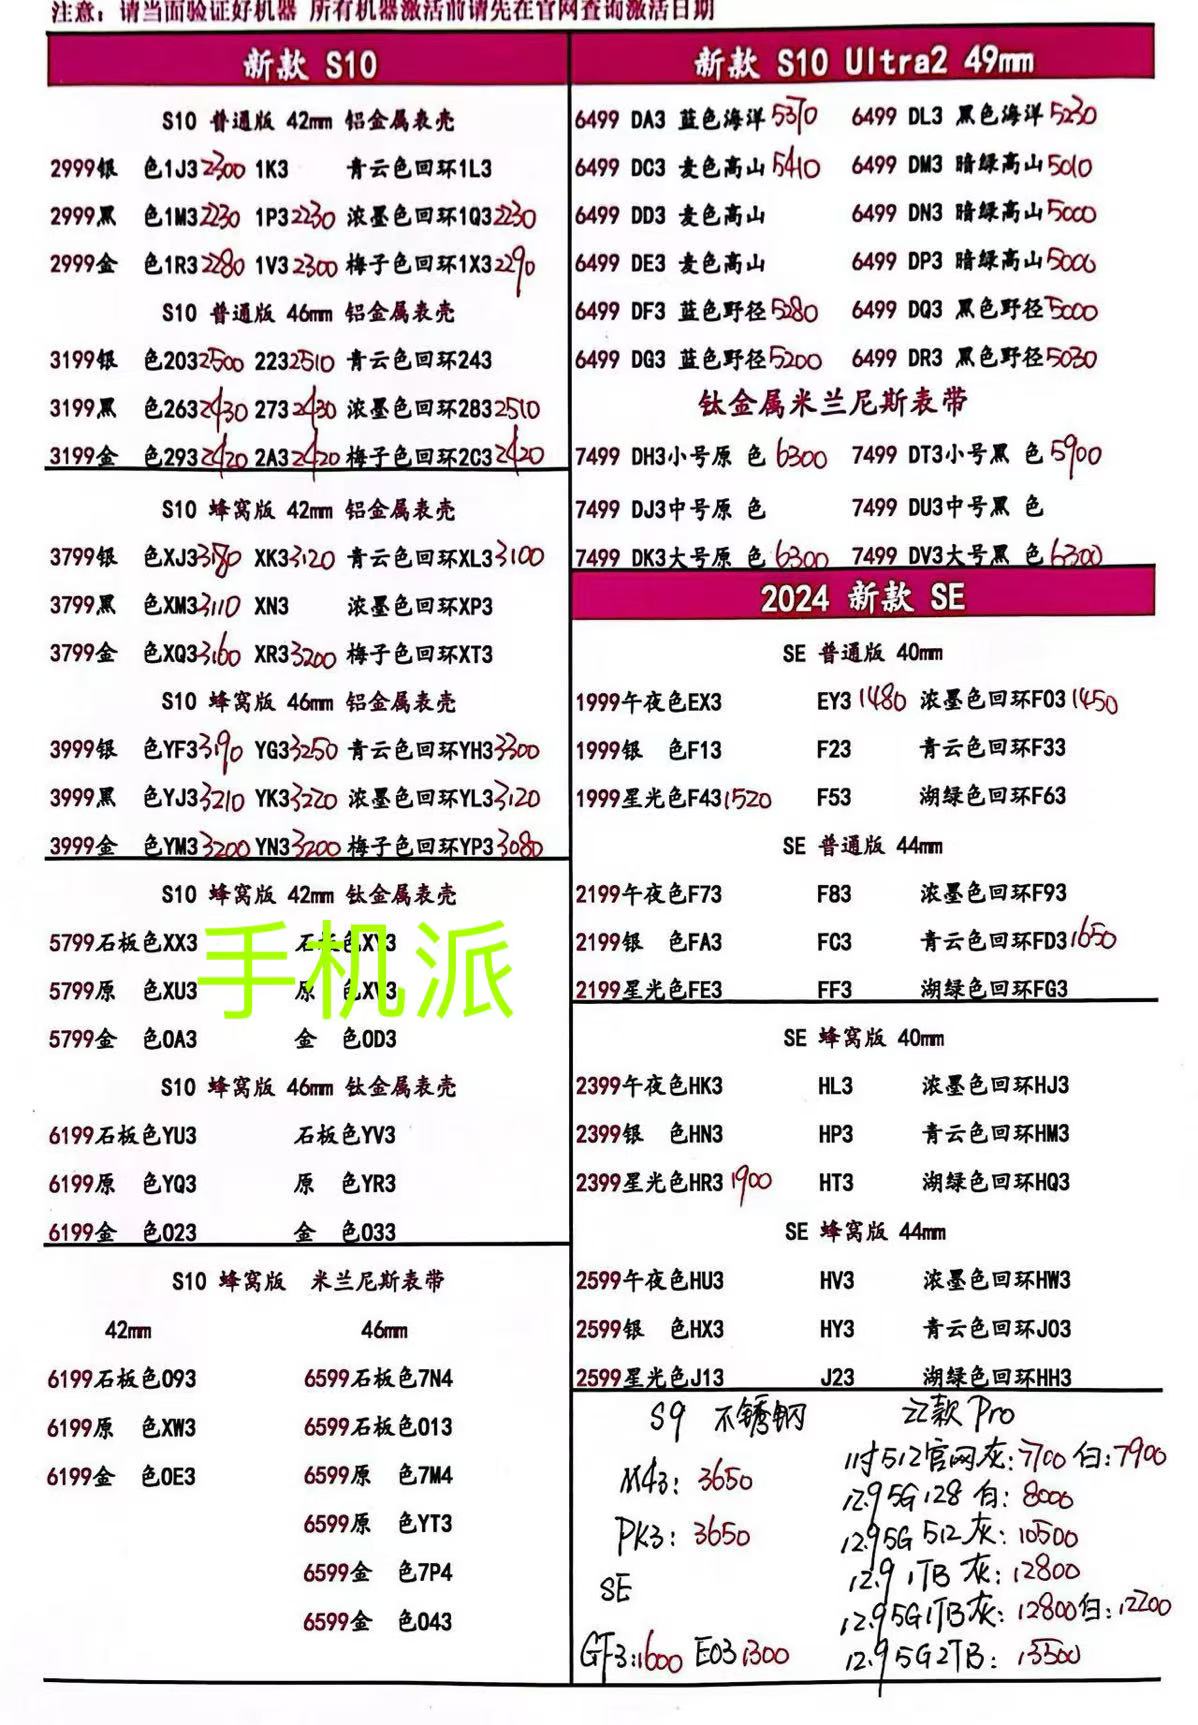 注意：请当面验证好机器 所有机器激活前请先在官网查询激活日期
新款 S10
S10 普通版 42mm 铝金属表壳
2999银 色1J3 2300 1K3 青云色回环1L3
2999黑 色1M3 2230 1P3 2230 浓墨色回环1Q3 2230
2999金 色1R3 2280 1V3 2300 梅子色回环1X3 2290
S10 普通版 46mm 铝金属表壳
3199银 色203 2500 223 2510 青云色回环243
3199黑 色263 2430 273 2430 浓墨色回环283 2510
3199金 色293 2420 2A3 2420 梅子色回环2C3 2420
S10 蜂窝版 42mm 铝金属表壳
3799银 色XJ3 3180 XK3 3120 青云色回环XL3 3100
3799黑 色XM3 3110 XN3 浓墨色回环XP3
3799金 色XQ3 3160 XR3 3200 梅子色回环XT3
S10 蜂窝版 46mm 铝金属表壳
3999银 色YF3 3190 YG3 3250 青云色回环YH3 3300
3999黑 色YJ3 3210 YK3 3220 浓墨色回环YL3 3120
3999金 色YM3 3200 YN3 3200 梅子色回环YP3 3080
S10 蜂窝版 42mm 钛金属表壳
5799石板色XX3 石板色XY3
手机派
5799原 色XU3 原 色XV3
5799金 色0A3 金 色0D3
S10 蜂窝版 46mm 钛金属表壳
6199石板色YU3 石板色YV3
6199原 色YQ3 原 色YR3
6199金 色023 金 色033
S10 蜂窝版 米兰尼斯表带
42mm 46mm
6199石板色093 6599石板色7N4
6199原 色XW3 6599石板色013
6199金 色0E3 6599原 色7M4
6599原 色YT3
6599金 色7P4
6599金 色043
新款 S10 Ultra2 49mm
6499 DA3 蓝色海洋 5370 6499 DL3 黑色海洋 5230
6499 DC3 麦色高山 5410 6499 DM3 暗绿高山 5010
6499 DD3 麦色高山 6499 DN3 暗绿高山 5000
6499 DE3 麦色高山 6499 DP3 暗绿高山 5000
6499 DF3 蓝色野径 5280 6499 DQ3 黑色野径 5000
6499 DG3 蓝色野径 5200 6499 DR3 黑色野径 5030
钛金属米兰尼斯表带
7499 DH3小号原 色 6300 7499 DT3小号黑 色 5900
7499 DJ3中号原 色 7499 DU3中号黑 色
7499 DK3大号原 色 6300 7499 DV3大号黑 色 6300
2024 新款 SE
SE 普通版 40mm
1999午夜色EX3 EY3 1480 浓墨色回环F03 1450
1999银 色F13 F23 青云色回环F33
1999星光色F43 1520 F53 湖绿色回环F63
SE 普通版 44mm
2199午夜色F73 F83 浓墨色回环F93
2199银 色FA3 FC3 青云色回环FD3 1650
2199星光色FE3 FF3 湖绿色回环FG3
SE 蜂窝版 40mm
2399午夜色HK3 HL3 浓墨色回环HJ3
2399银 色HN3 HP3 青云色回环HM3
2399星光色HR3 1900 HT3 湖绿色回环HQ3
SE 蜂窝版 44mm
2599午夜色HU3 HV3 浓墨色回环HW3
2599银 色HX3 HY3 青云色回环J03
2599星光色J13 J23 湖绿色回环HH3
S9 不锈钢
M43: 3650
PK3: 3650
SE
GF3:1600 E03 1300
22款 Pro
11寸512官网灰:7700 白:7900
12.9 5G 128 白: 8000
12.9 5G 512 灰: 10500
12.9 1TB 灰: 12800
12.9 5G 1TB灰: 12800 白: 12200
12.9 5G 2TB: 13500